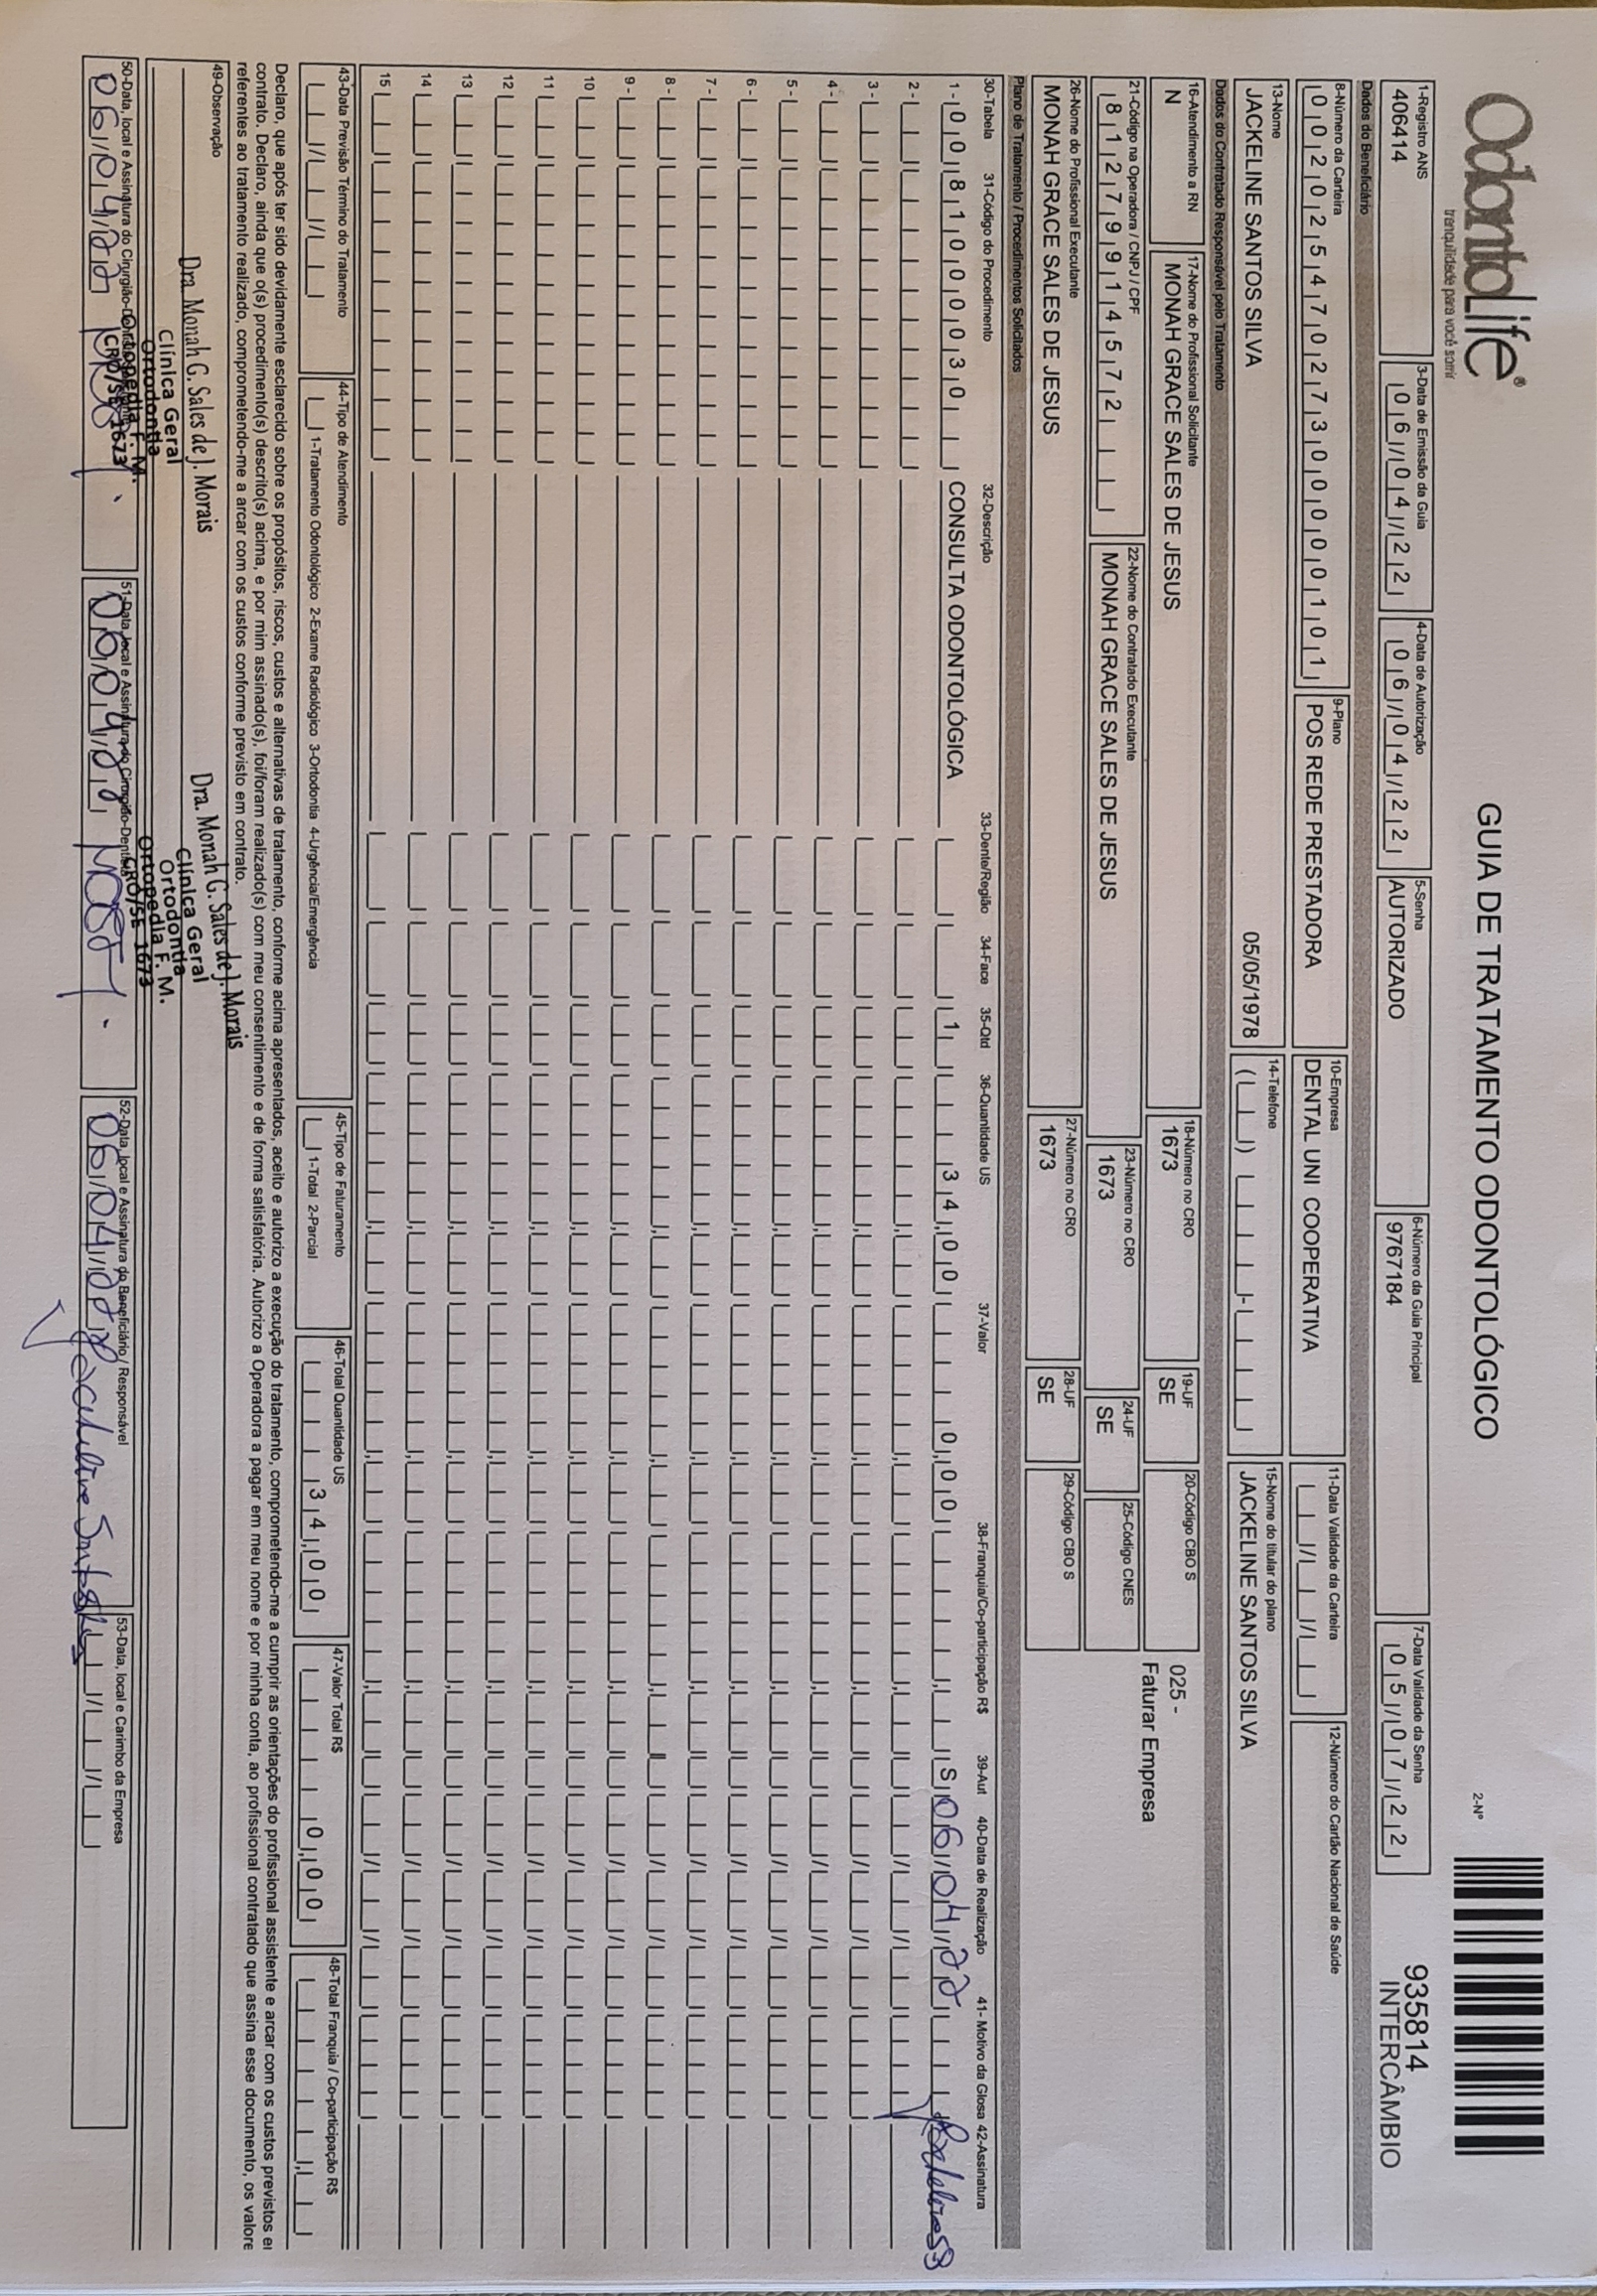 OdontoLife®
tranquilidade para você sorrir
GUIA DE TRATAMENTO ODONTOLÓGICO
2-Nº
935814
INTERCÂMBIO
1-Registro ANS
406414
3-Data de Emissão da Guia
06/04/22
4-Data de Autorização
06/04/22
5-Senha
AUTORIZADO
6-Número da Guia Principal
9767184
7-Data Validade da Senha
05/07/22
Dados do Beneficiário
8-Número da Carteira
00202547027300000101
9-Plano
POS REDE PRESTADORA
10-Empresa
DENTAL UNI COOPERATIVA
11-Data Validade da Carteira
12-Número do Cartão Nacional de Saúde
13-Nome
JACKELINE SANTOS SILVA 05/05/1978
14-Telefone
15-Nome do titular do plano
JACKELINE SANTOS SILVA
Dados do Contratado Responsável pelo Tratamento
16-Atendimento a RN
N
17-Nome do Profissional Solicitante
MONAH GRACE SALES DE JESUS
18-Número no CRO
1673
19-UF
SE
20-Código CBO S
025 -
Faturar Empresa
21-Código na Operadora / CNPJ / CPF
81279914572
22-Nome do Contratado Executante
MONAH GRACE SALES DE JESUS
23-Número no CRO
1673
24-UF
SE
25-Código CNES
26-Nome do Profissional Executante
MONAH GRACE SALES DE JESUS
27-Número no CRO
1673
28-UF
SE
29-Código CBO S
Plano de Tratamento / Procedimentos Solicitados
30-Tabela 31-Código do Procedimento 32-Descrição 33-Dente/Região 34-Face 35-Qtd 36-Quantidade US 37-Valor 38-Franquia/Co-participação R$ 39-Aut 40-Data de Realização 41- Motivo da Glosa 42-Assinatura
1- 00 81000030 CONSULTA ODONTOLÓGICA 1 34,00 0,00 S 06/04/22
2 -
3 -
4 -
5 -
6 -
7 -
8 -
9 -
10
11
12
13
14
15
43-Data Previsão Término do Tratamento
44-Tipo de Atendimento
1-Tratamento Odontológico 2-Exame Radiológico 3-Ortodontia 4-Urgência/Emergência
45-Tipo de Faturamento
1-Total 2-Parcial
46-Total Quantidade US
34,00
47-Valor Total R$
0,00
48-Total Franquia / Co-participação R$
Declaro, que após ter sido devidamente esclarecido sobre os propósitos, riscos, custos e alternativas de tratamento, conforme acima apresentados, aceito e autorizo a execução do tratamento, comprometendo-me a cumprir as orientações do profissional assistente e arcar com os custos previstos e
contrato. Declaro, ainda que o(s) procedimento(s) descrito(s) acima, e por mim assinado(s), foi/foram realizado(s) com meu consentimento e de forma satisfatória. Autorizo a Operadora a pagar em meu nome e por minha conta, ao profissional contratado que assina esse documento, os valore
referentes ao tratamento realizado, comprometendo-me a arcar com os custos conforme previsto em contrato.
49-Observação
Dra. Monah G. Sales de J. Morais
Clínica Geral
Ortodontia
Ortopedia F. M.
CRO/SE 1673
Dra. Monah G. Sales de J. Morais
Clínica Geral
Ortodontia
Ortopedia F. M.
CRO/SE 1673
50-Data, local e Assinatura do Cirurgião-Dentista
06/04/22
51-Data, local e Assinatura do Cirurgião-Dentista
52-Data, local e Assinatura do Beneficiário / Responsável
06/04/22 Jackeline Santos
53-Data, local e Carimbo da Empresa